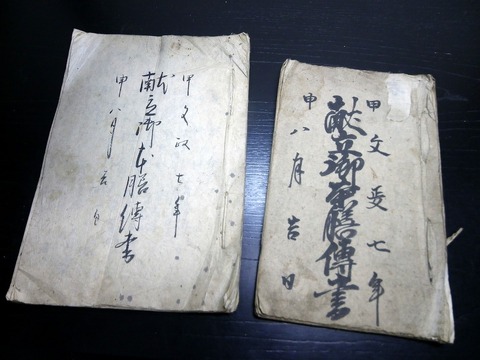 甲文政七年
献立御本膳傳書
申八月吉日
甲文政七年
献立御本膳傳書
申八月吉日